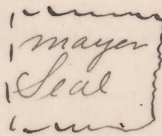 mayer
Seal